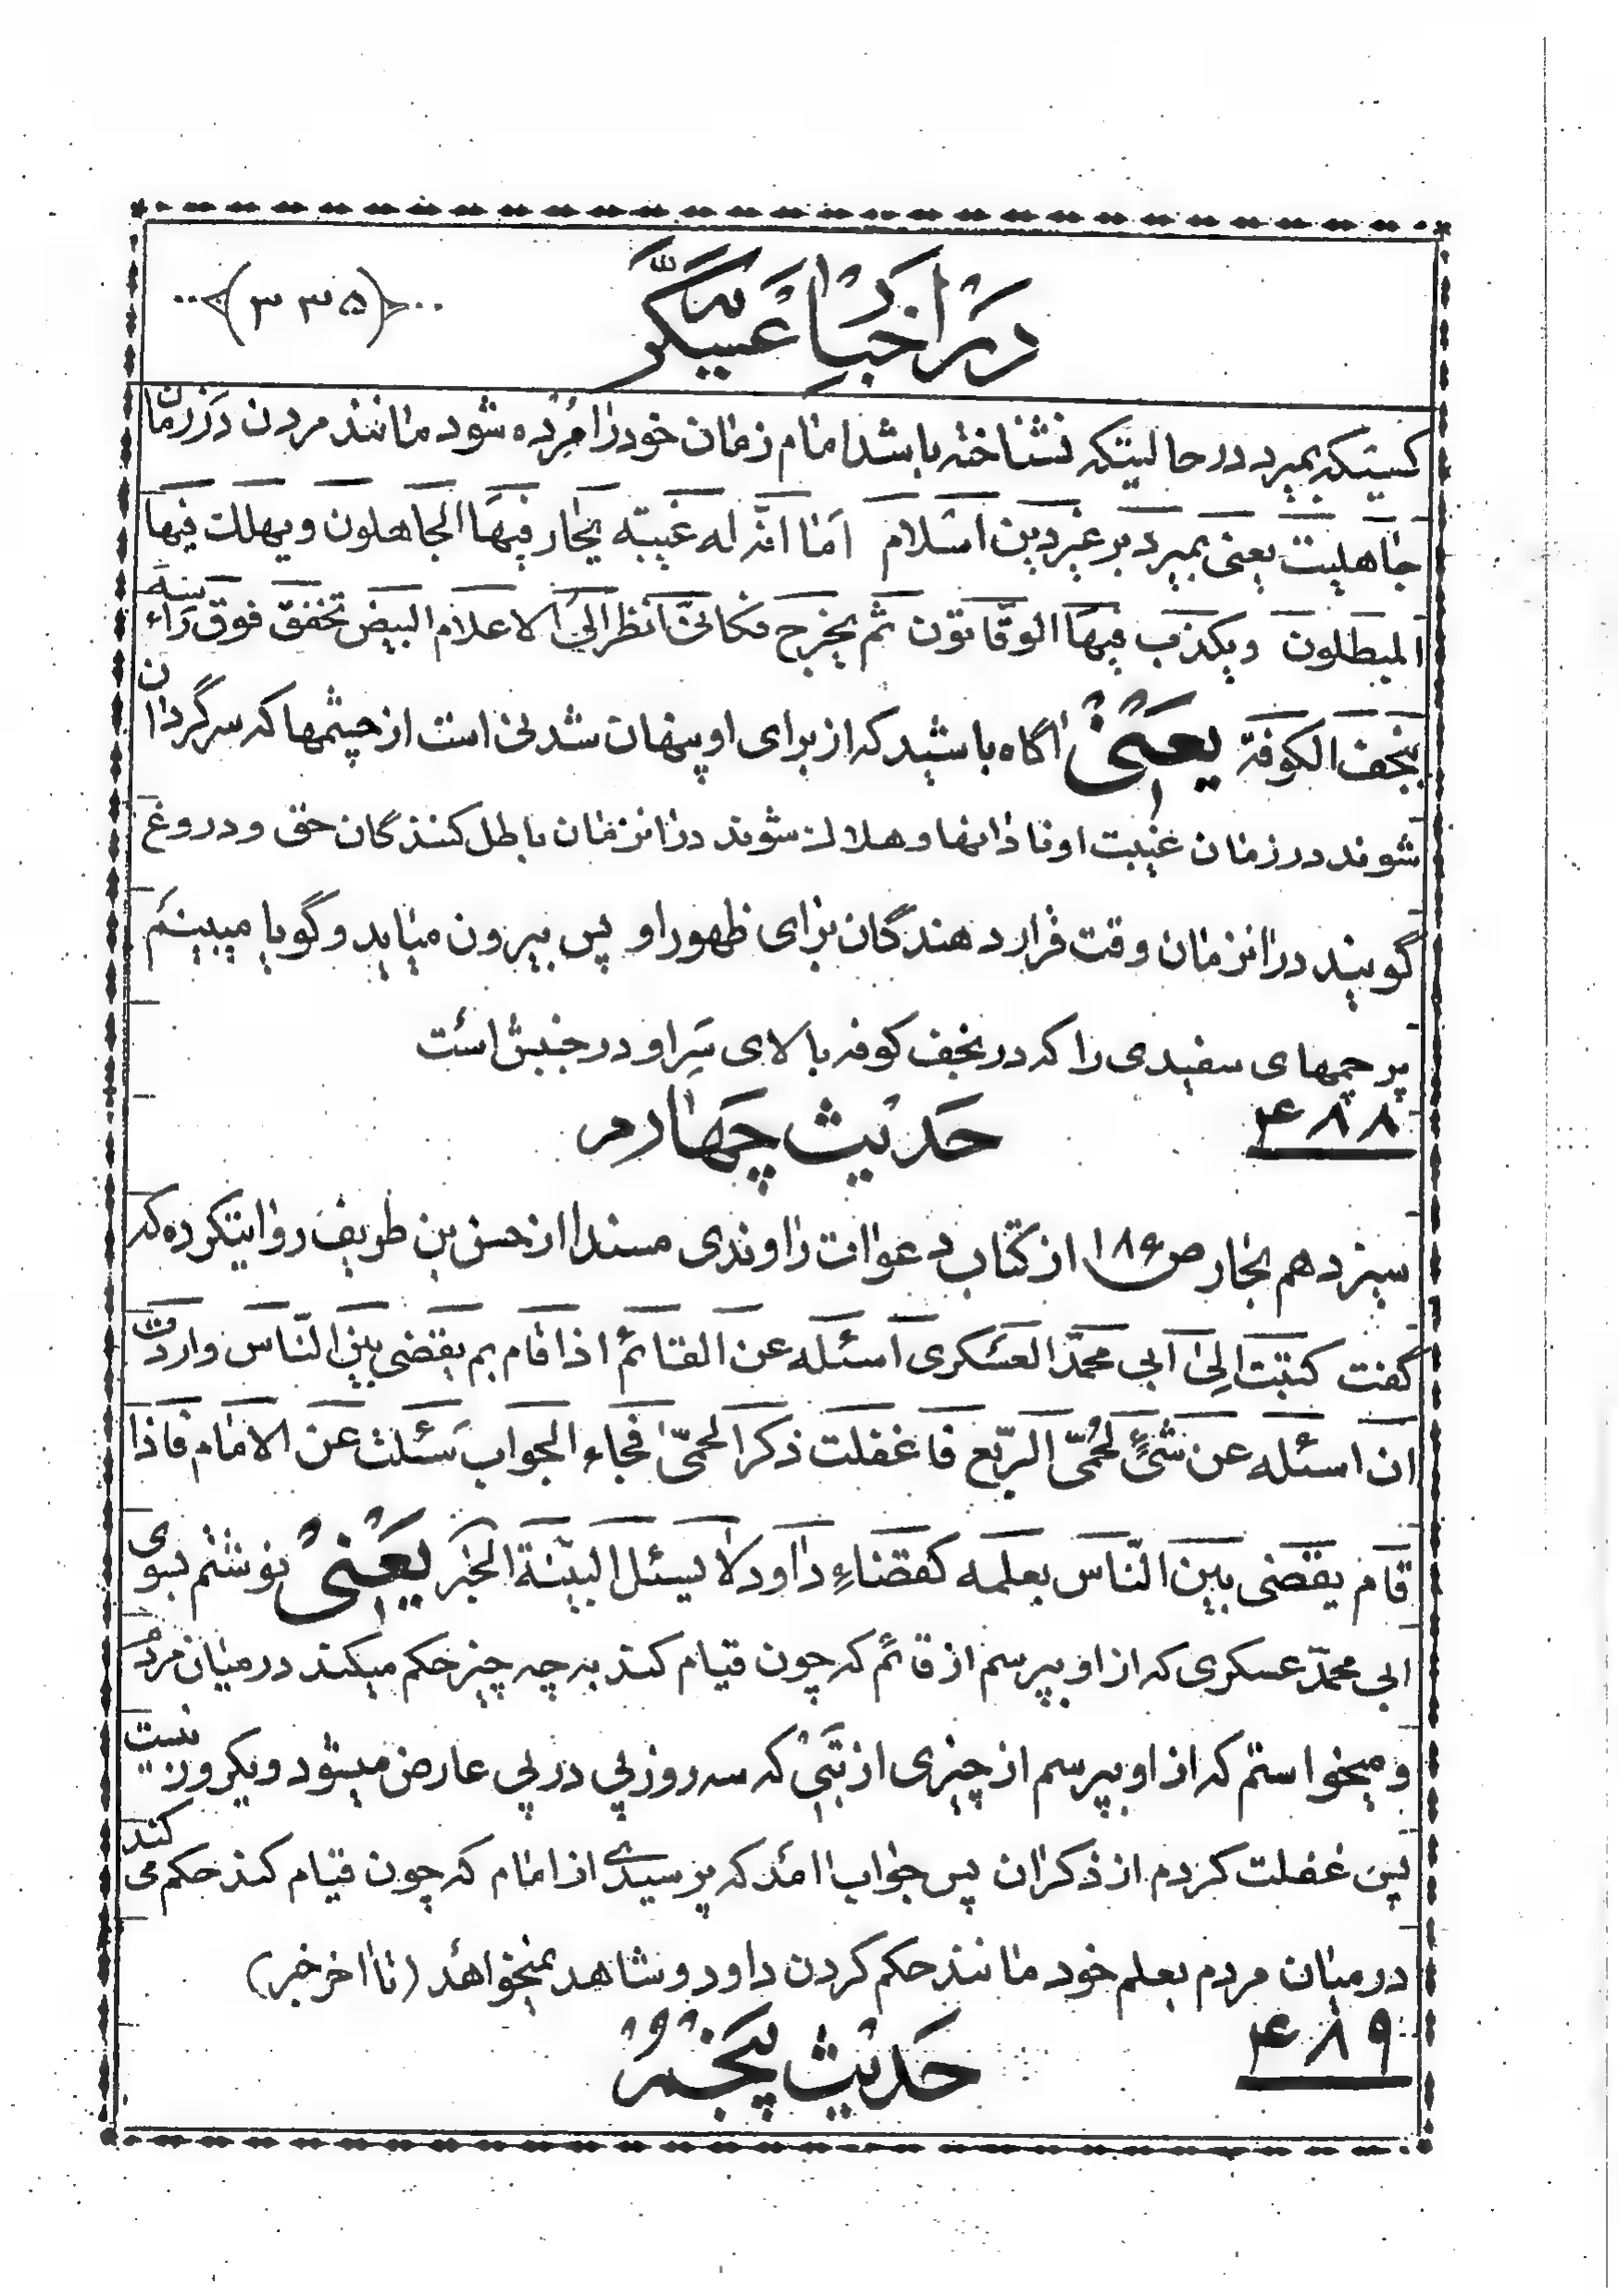 در اخبار عسکری
(۳۳۵)
کسیکه بمیرد در حالیتکه نشناخته باشد امام زمان خود را مرده شود مانند مردن در زمان
جاهلیت یعنی بمیرد بر غیر دین اسلام اما انّه له غیبته یحار فیها الجاهلون و یهلک فیها
المبطلون و یکذب فیها الوقّاتون ثم یخرج فکانّی انظر الی الاعلام البیض تخفق فوق راسه
بنجف الکوفة یعنی اگاه باشید که از برای او پنهان شدنی است از چشمها که سرگردان
شوند در زمان غیبت او نادانها و هلاک شوند در انزمان باطل کنندگان حق و دروغ
گویند در انزمان وقت قرار دهندگان برای ظهور او پس بیرون میاید و گویا میبینم
پرچمهای سفیدی را که در نجف کوفه بالای سر او در جنبش است
۴۸۸ حدیث چهارم
سیزدهم بحار ص۱۸۶ از کتاب دعوات راوندی مسندا از حسن بن طریف روایتکرده که
گفت کتبت الی ابی محمّد العسکری اسئله عن القائم اذا قام بم یقضی بین النّاس واردت
ان اسئله عن شیءٍ لحُمّی الرّبع فاغفلت ذکر الحمّی فجاء الجواب سئلت عن الامام فاذا
قام یقضی بین النّاس بعلمه کقضاءِ داود لا یسئل البیّنة الخبر یعنی نوشتم بسوی
ابی محمّد عسکری که از او بپرسم از قائم که چون قیام کند به چه چیز حکم میکند در میان مردم
و میخواستم که از او بپرسم از چیزی از تبی که سه روز پی در پی عارض میشود و یکروز نیست
پس غفلت کردم از ذکر ان پس جواب امد که پرسیدی از امام که چون قیام کند حکم می کند
در میان مردم بعلم خود مانند حکم کردن داود و شاهد نمیخواهد (تا اخر خبر)
۴۸۹ حدیث پنجم